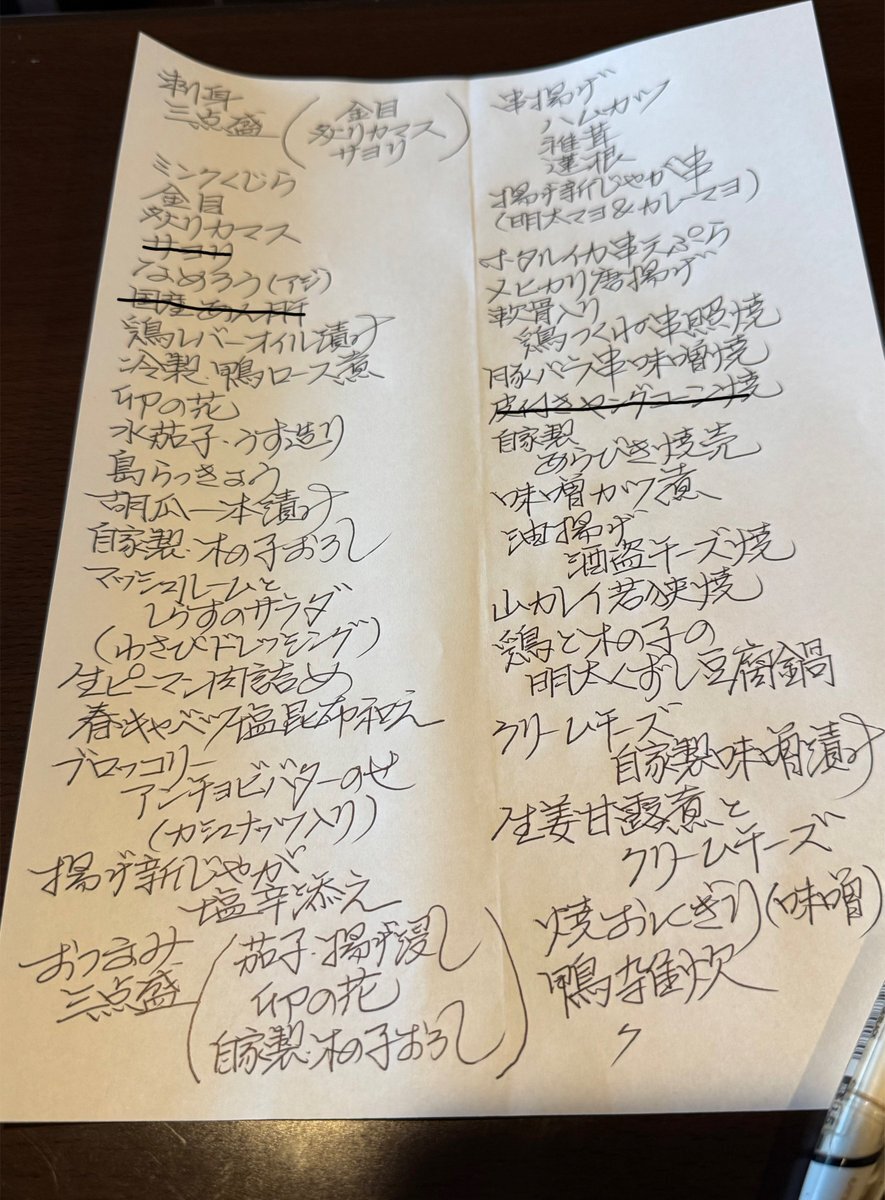 刺身
三点盛(金目
炙りカマス
サヨリ)
ミンクくじら
金目
炙りカマス
サヨリ
なめろう(アジ)
国産あん肝
鶏レバーオイル漬け
冷製・鴨ロース煮
卯の花
水茄子・うす造り
島らっきょう
胡瓜一本漬け
自家製・木の子おろし
マッシュルームと
しらすのサラダ
(わさびドレッシング)
生ピーマン肉詰め
春キャベツ塩昆布和え
ブロッコリー
アンチョビバターのせ
(カシュナッツ入り)
揚げ新じゃが
塩辛と添え
おつまみ
三点盛(茄子・揚げ浸し
卯の花
自家製・木の子おろし)
串揚げ
ハムカツ
椎茸
蓮根
揚げ新じゃが串
(明太マヨ&カレーマヨ)
ホタルイカ串天ぷら
メヒカリ唐揚げ
軟骨入り
鶏つくねの串照焼
豚バラ串味噌焼
皮付きヤングコーン焼
自家製
あらびき焼売
味噌カツ煮
油揚げ
酒盗チーズ焼
山カレイ若狭焼
鶏と木の子の
明太くずし豆腐鍋
クリームチーズ
自家製味噌漬け
生姜甘露煮と
クリームチーズ
焼おにぎり(味噌)
鴨雑炊
ク